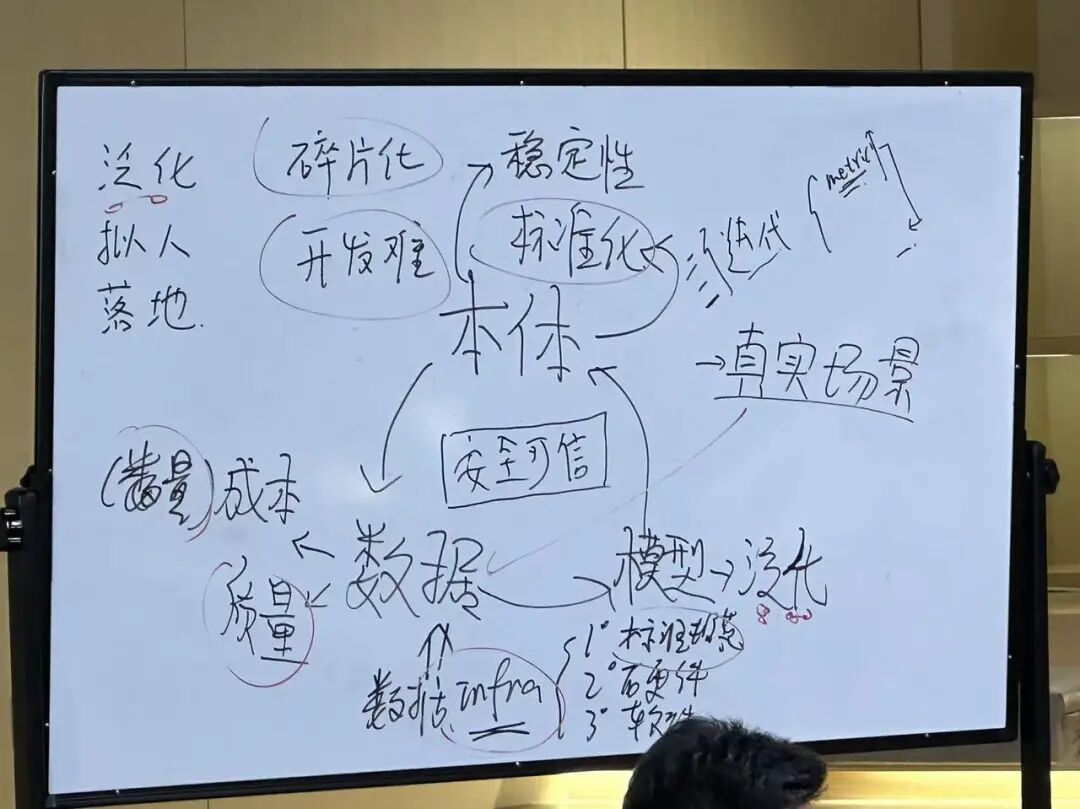 泛化
拟人
落地.
碎片化
开发难
稳定性
标准化
迭代
metric
本体
→真实场景
安全可信
(数量)成本
质量
数据
模型→泛化
数据infra
1° 标准规范
2° 硬件
3° 软件